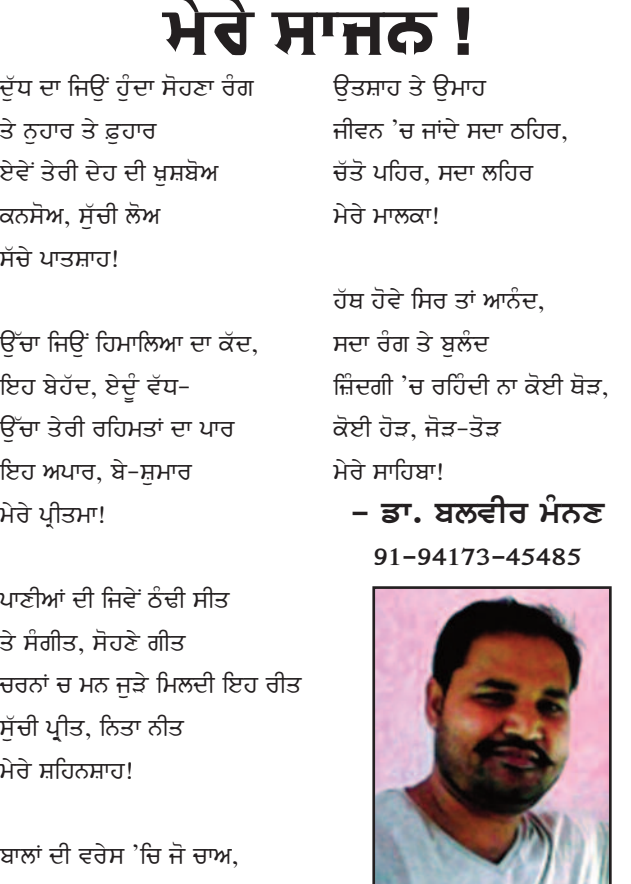 ਮੇਰੇ ਸਾਜਨ !
ਦੁੱਧ ਦਾ ਜਿਉਂ ਹੁੰਦਾ ਸੋਹਣਾ ਰੰਗ
ਤੇ ਨੁਹਾਰ ਤੇ ਫ਼ੁਹਾਰ
ਏਵੇਂ ਤੇਰੀ ਦੇਹ ਦੀ ਖ਼ੁਸ਼ਬੋਅ
ਕਨਸੋਅ, ਸੁੱਚੀ ਲੋਅ
ਸੱਚੇ ਪਾਤਸ਼ਾਹ!
ਉੱਚਾ ਜਿਉਂ ਹਿਮਾਲਿਆ ਦਾ ਕੱਦ,
ਇਹ ਬੇਹੱਦ, ਏਦੂੰ ਵੱਧ-
ਉੱਚਾ ਤੇਰੀ ਰਹਿਮਤਾਂ ਦਾ ਪਾਰ
ਇਹ ਅਪਾਰ, ਬੇ-ਸ਼ੁਮਾਰ
ਮੇਰੇ ਪ੍ਰੀਤਮਾ!
ਪਾਣੀਆਂ ਦੀ ਜਿਵੇਂ ਠੰਢੀ ਸੀਤ
ਤੇ ਸੰਗੀਤ, ਸੋਹਣੇ ਗੀਤ
ਚਰਨਾਂ ਚ ਮਨ ਜੁੜੇ ਮਿਲਦੀ ਇਹ ਰੀਤ
ਸੁੱਚੀ ਪ੍ਰੀਤ, ਨਿਤਾ ਨੀਤ
ਮੇਰੇ ਸ਼ਹਿਨਸ਼ਾਹ!
ਬਾਲਾਂ ਦੀ ਵਰੇਸ 'ਚਿ ਜੋ ਚਾਅ,
ਉਤਸ਼ਾਹ ਤੇ ਉਮਾਹ
ਜੀਵਨ 'ਚ ਜਾਂਦੇ ਸਦਾ ਠਹਿਰ,
ਚੱਤੋ ਪਹਿਰ, ਸਦਾ ਲਹਿਰ
ਮੇਰੇ ਮਾਲਕਾ!
ਹੱਥ ਹੋਵੇ ਸਿਰ ਤਾਂ ਆਨੰਦ,
ਸਦਾ ਰੰਗ ਤੇ ਬੁਲੰਦ
ਜ਼ਿੰਦਗੀ 'ਚ ਰਹਿੰਦੀ ਨਾ ਕੋਈ ਥੋੜ,
ਕੋਈ ਹੋੜ, ਜੋੜ-ਤੋੜ
ਮੇਰੇ ਸਾਹਿਬਾ!
- ਡਾ. ਬਲਵੀਰ ਮੰਨਣ
91-94173-45485